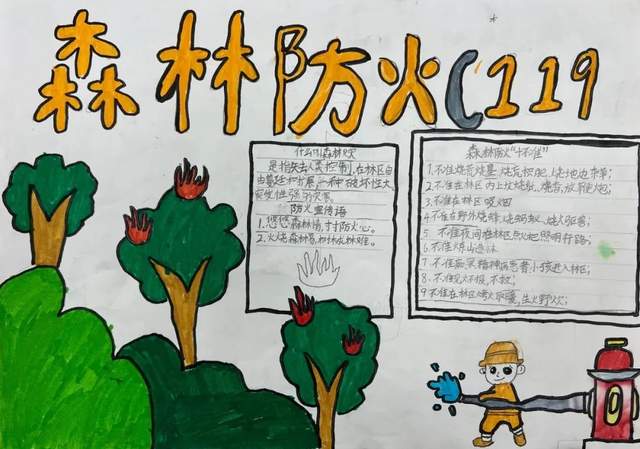 森林防火119
什么叫森林火灾
是指失去人为控制,在林区自
由蔓延和扩展,一种破坏性大
突发性强的灾害.
防火宣传语
1.悠悠森林情,寸寸防火心。
2.火烧森林易,
森林防火"十不准"
1.不准烧荒烧垦,烧
2.不准在林区内上坟烧纸,烧香,放鞭炮;
3.不准在林区吸烟
4.不准在野外烧蜂,烧蚂蚁,烧火驱兽;
5.不准夜间在林区点火把照明行路;
6.不准炼山造林
7.不准呆 精神病患者小孩进入林区;
8.不准见火不报,不救;
9.不准在林区烤火取暖,生火野炊;